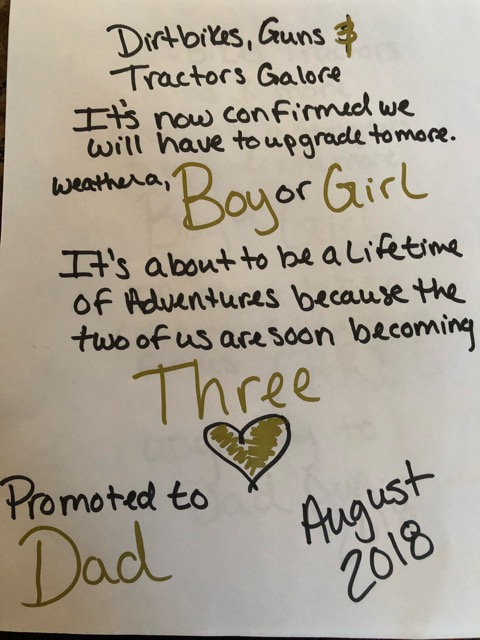 Dirtbikes, Guns &
Tractors Galore
It's now confirmed we
will have to upgrade to more.
Weather a, Boy or Girl
It's about to be a Lifetime
of Adventures because the
two of us are soon becoming
Three
Promoted to
Dad
August
2018